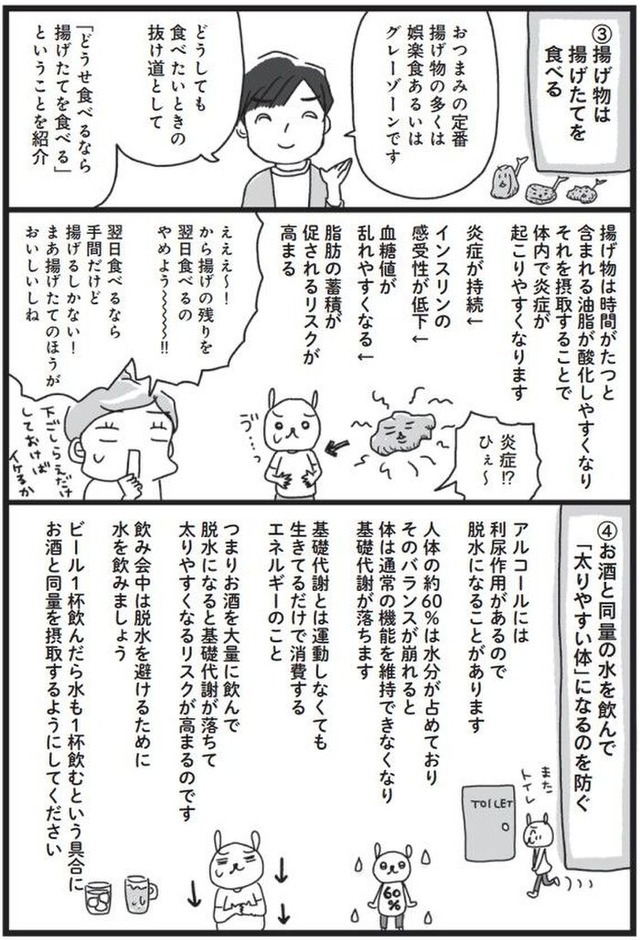 ③揚げ物は
揚げたてを
食べる
おつまみの定番
揚げ物の多くは
娯楽食あるいは
グレーゾーンです
どうしても
食べたいときの
抜け道として
「どうせ食べるなら
揚げたてを食べる」
ということを紹介
揚げ物は時間がたつと
含まれる油脂が酸化しやすくなり
それを摂取することで
体内で炎症が
起こりやすくなります
炎症が持続←
インスリンの
感受性が低下←
血糖値が
乱れやすくなる←
脂肪の蓄積が
促されるリスクが
高まる
炎症!?
ひぇ〜
ゔ…っ
えええ〜!
から揚げの残りを
翌日食べるの
やめよう〜〜〜!!
翌日食べるなら
手間だけど
揚げるしかない!
まあ揚げたてのほうが
おいしいしね
下ごしらえだけ
しておけば
イケるか
④お酒と同量の水を飲んで
「太りやすい体」になるのを防ぐ
アルコールには
利尿作用があるので
脱水になることがあります
また
トイレ
TOILET
人体の約60%は水分が占めており
そのバランスが崩れると
体は通常の機能を維持できなくなり
基礎代謝が落ちます
60
%
基礎代謝とは運動しなくても
生きてるだけで消費する
エネルギーのこと
つまりお酒を大量に飲んで
脱水になると基礎代謝が落ちて
太りやすくなるリスクが高まるのです
飲み会中は脱水を避けるために
水を飲みましょう
ビール1杯飲んだら水も1杯飲むという具合に
お酒と同量を摂取するようにしてください